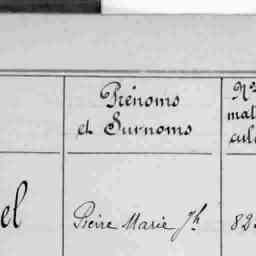 Prénoms
et Surnoms
Nos
mat
cul
el
Pierre Marie Jh
82